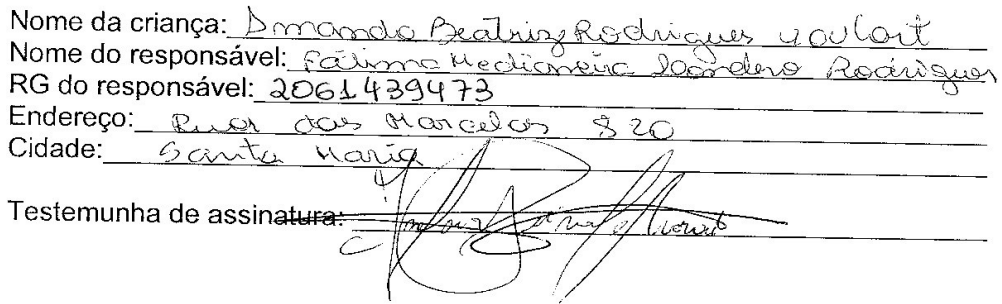 Nome da criança: Amanda Beatriz Rodrigues Goulart
Nome do responsável: Fátima Medianeira Rodrigues
RG do responsável: 2061439473
Endereço: Rua das Marcelas 820
Cidade: Santa Maria
Testemunha de assinatura: